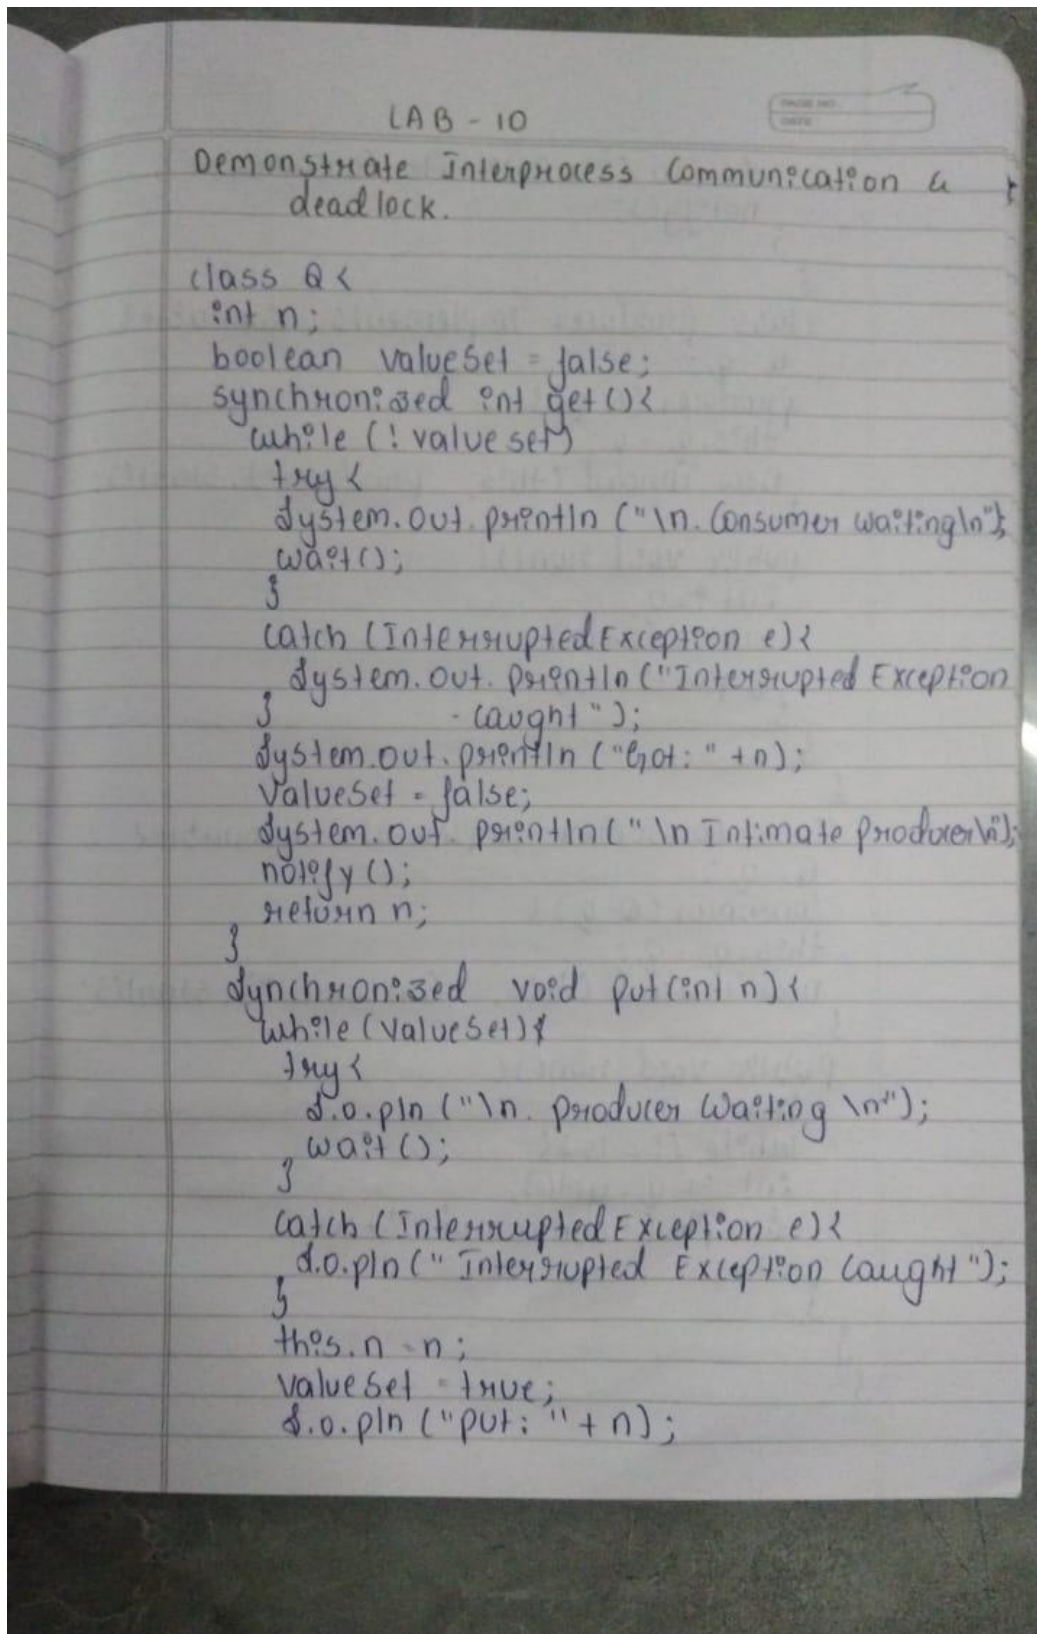 LAB - 10
PAGE NO.
DATE
Demonstrate Interprocess Communication &
deadlock.
class Q {
int n;
boolean valueSet = false;
synchronized int get(){
while (! value set)
try {
System.out.println ("\n. Consumer waiting\n");
wait();
}
catch (InterruptedException e){
System.out.println ("Interrupted Exception
} - caught ");
System.out.println ("Got: " +n);
valueSet = false;
System.out.println (" \n Intimate Producer\n");
notify ();
return n;
}
Synchronized void put(int n){
while (valueSet){
try {
S.o.pln ("\n. producer Waiting \n");
wait ();
}
catch (Interrupted Exception e){
S.o.pln (" Interrupted Exception Caught ");
}
this.n = n;
valueSet = true;
S.o.pln ("put: " + n);